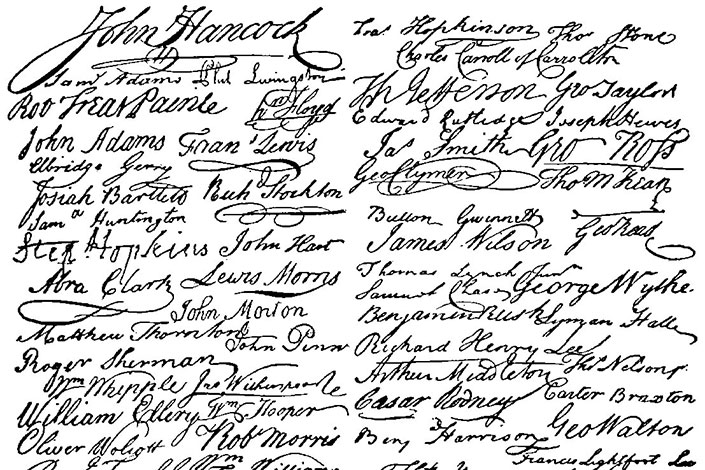 John Hancock
Saml Adams Phil Livingston
Robt Treat Paine Wm Floyd
John Adams Frans Lewis
Elbridge Gerry
Josiah Bartlett Richd Stockton
Saml Huntington
Step Hopkins John Hart
Abra Clark Lewis Morris
John Morton
Matthew Thornton John Penn
Roger Sherman
Wm Whipple Jno Witherspoon
William Ellery Wm Hooper
Oliver Wolcott Robt Morris
Wm Williams
Fras Hopkinson Thos Stone
Charles Carroll of Carrollton
Th Jefferson Geo Taylor
Edward Rutledge Joseph Hewes
Jas Smith Geo Ross
Geo Clymer Tho M Kean
Button Gwinnett
James Wilson Geo Read
Thomas Lynch Junr
Samuel Chase George Wythe
Benjamin Rush Lyman Hall
Richard Henry Lee
Arthur Middleton Ths Nelson jr
Cæsar Rodney Carter Braxton
Benj Harrison Geo Walton
Francis Lightfoot Lee